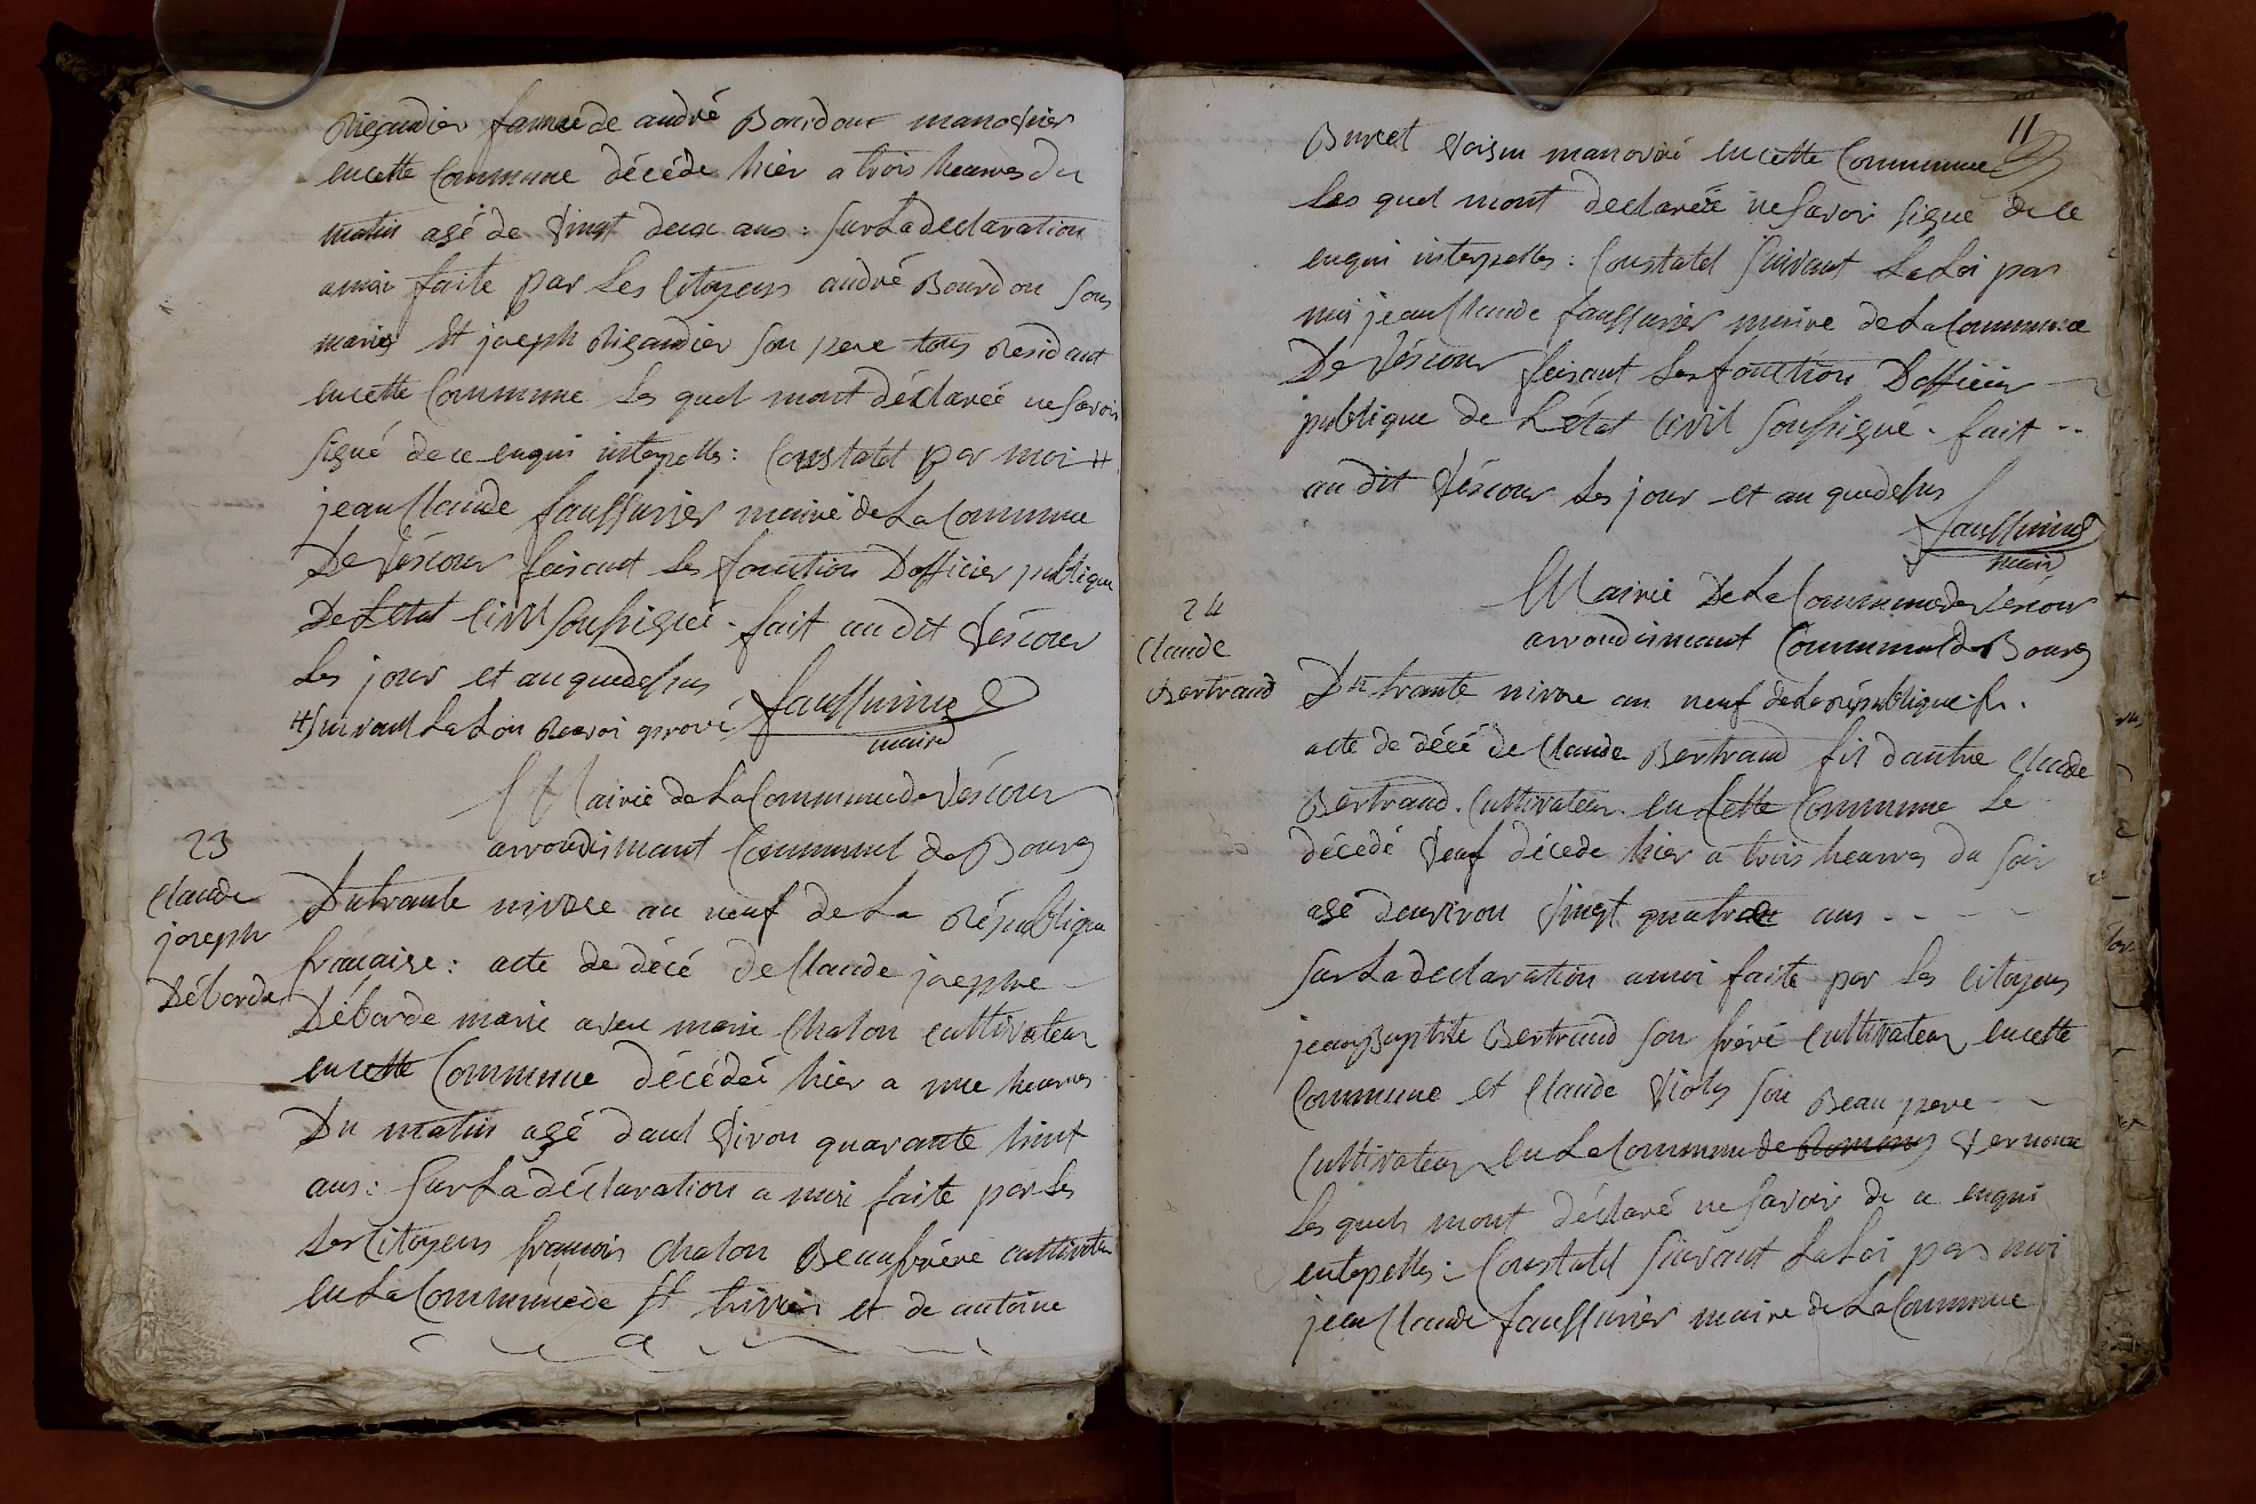 Rigaudier famme de andré Bourdon manovrier
en cette Commune décéde hier a trois heures du
matin agé de vingt deux ans : sur la declaration
a moi faite par les Citoyens andré Bourdon sons
maries et joseph Rigaudier son pere tous Residant
en cette Commune les quel mont déclareé ne savoir
signé de ce enqui interpelles : Constatet par moi #
jean Claude faussurier maire de la Commune
De véscour faisant les fonction Dofficier publique
De Létat Civil soussigné - fait au dit véscour
Les jour et an quedessus
# suivant la Loi
faussurier
maire
Mairie de la Commune de véscour
arrondismant Communnel de Bourg
23
Claude
joseph
Déborde
Du trante nivose an neuf de la République
française : acte de décé de Claude josephe
Déborde marié avec marie Chalon cultivateur
en cette Commune décédeé hier a une heures
Du matin agé daul viron quarante huit
ans : sur la déclaration a moi faite par les
les Citoyens françois Chalon Beaufréré cultivateur
en la Commune de st trivier et de antoine
11
Buret voisin manovré en cette Commune
les quel mont declareé ne savoir signé de ce
enqui interpelles : Constatet suivant la Loi par
moi jean Claude faussurier maire de la Commune
De véscour faisant les fonction Dofficier
publique de Létat Civil soussigné - fait --
au dit véscour les jour et an quedessus
faussurier
maire
Mairie De la Commune de véscour
arrondismant Communnel de Bourg
24
Claude
Bertrand
Du trante nivose an neuf de la république fr.
acte de décé de Claude Bertrand fils dautre Claude
Bertrand . Cultivateur en Cette Commune le
décédé veuf décede hier a trois heures du soir
agé denviron vingt quatre ans - - - -
sur la declaration a moi faite par les citoyens
jean Baptiste Bertrand son fréré Cultivateur en cette
Commune et Claude violy son Beau pere - -
Cultivateur en la Commune de Romenay vernoux
les quels mont déclaré ne savoir de ce enqui
entepelles : Constatet suivant la Loi par moi
jean Claude faussurier maire de la Commune